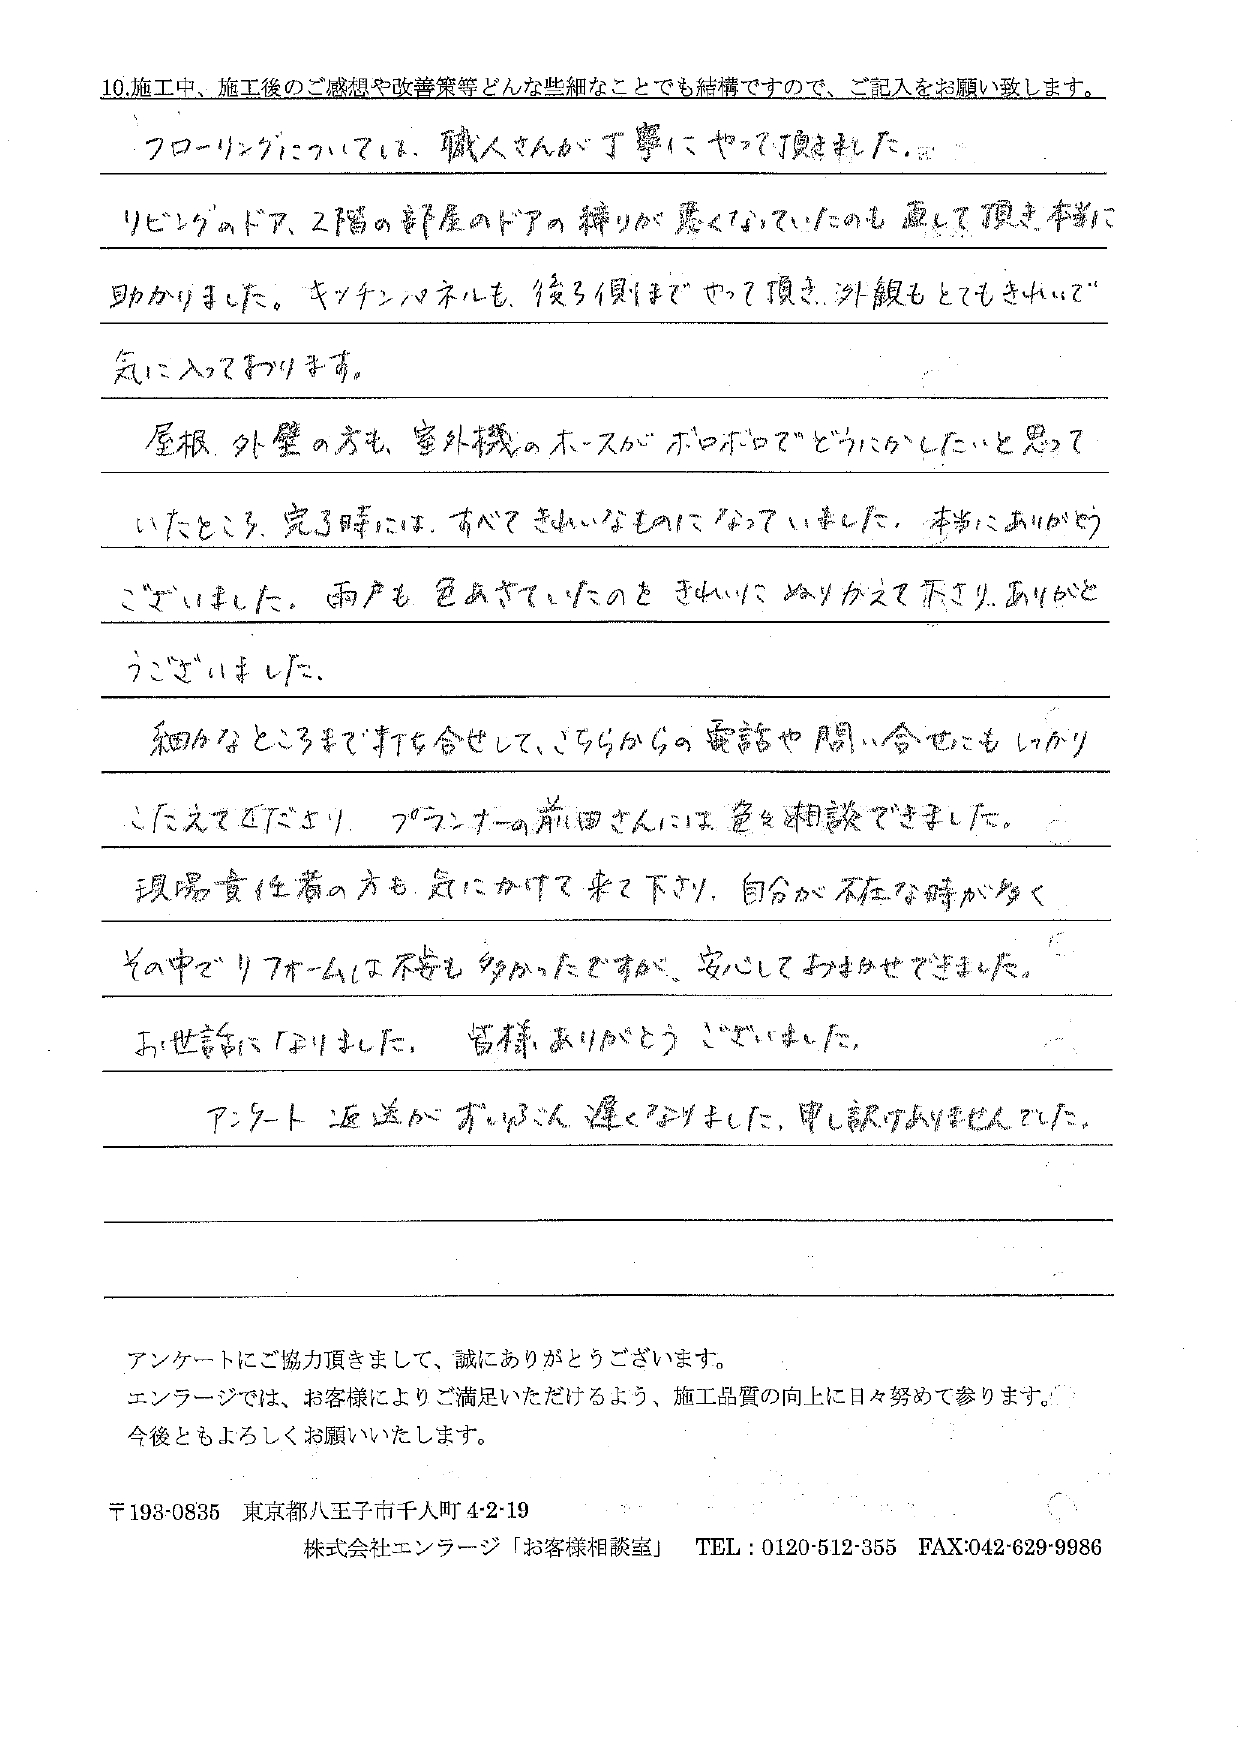 10.施工中、施工後のご感想や改善策等どんな些細なことでも結構ですので、ご記入をお願い致します。
フローリングについては、職人さんが丁寧にやって頂きました。
リビングのドア、2階の部屋のドアの締りが悪くなっていたのも直して頂き本当に
助かりました。キッチンパネルも、後ろ側までやって頂き、外観もとてもきれいで
気に入っております。
屋根、外壁の方も、室外機のホースがボロボロでどうにかしたいと思って
いたところ、完了時には、すべてきれいなものになっていました。本当にありがとう
ございました。雨戸も色あせていたのをきれいにぬりかえて下さり、ありがと
うございました。
細かなところまで打ち合せして、こちらからの電話や問い合せにもしっかり
こたえてくださり、プランナーの前田さんには色々相談できました。
現場責任者の方も、気にかけて来て下さり、自分が不在な時が多く
その中でリフォームは不安も多かったですが、安心しておまかせできました。
お世話になりました。皆様ありがとうございました。
アンケート返送がずいぶん遅くなりました。申し訳けありませんでした。
アンケートにご協力頂きまして、誠にありがとうございます。
エンラージでは、お客様によりご満足いただけるよう、施工品質の向上に日々努めて参ります。
今後ともよろしくお願いいたします。
〒193-0835 東京都八王子市千人町 4-2-19
株式会社エンラージ「お客様相談室」 TEL:0120-512-355 FAX:042-629-9986